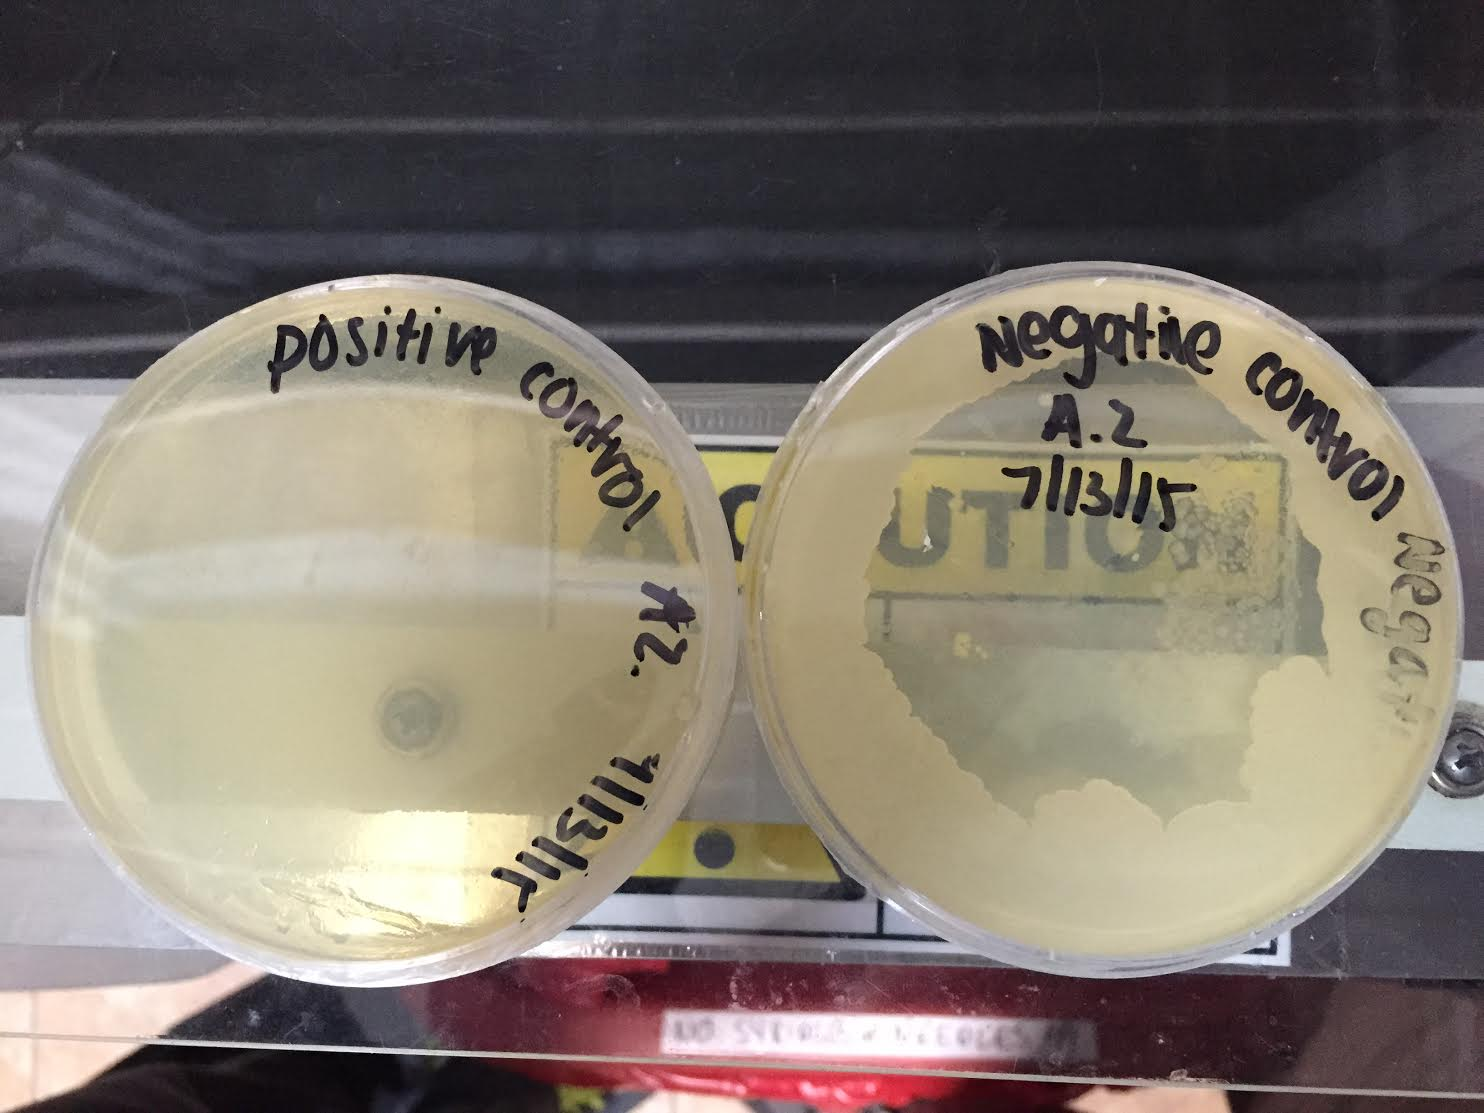 positive control
A2.
7/13/15
Negative control
A.2
7/13/15
Negati
CAUTION